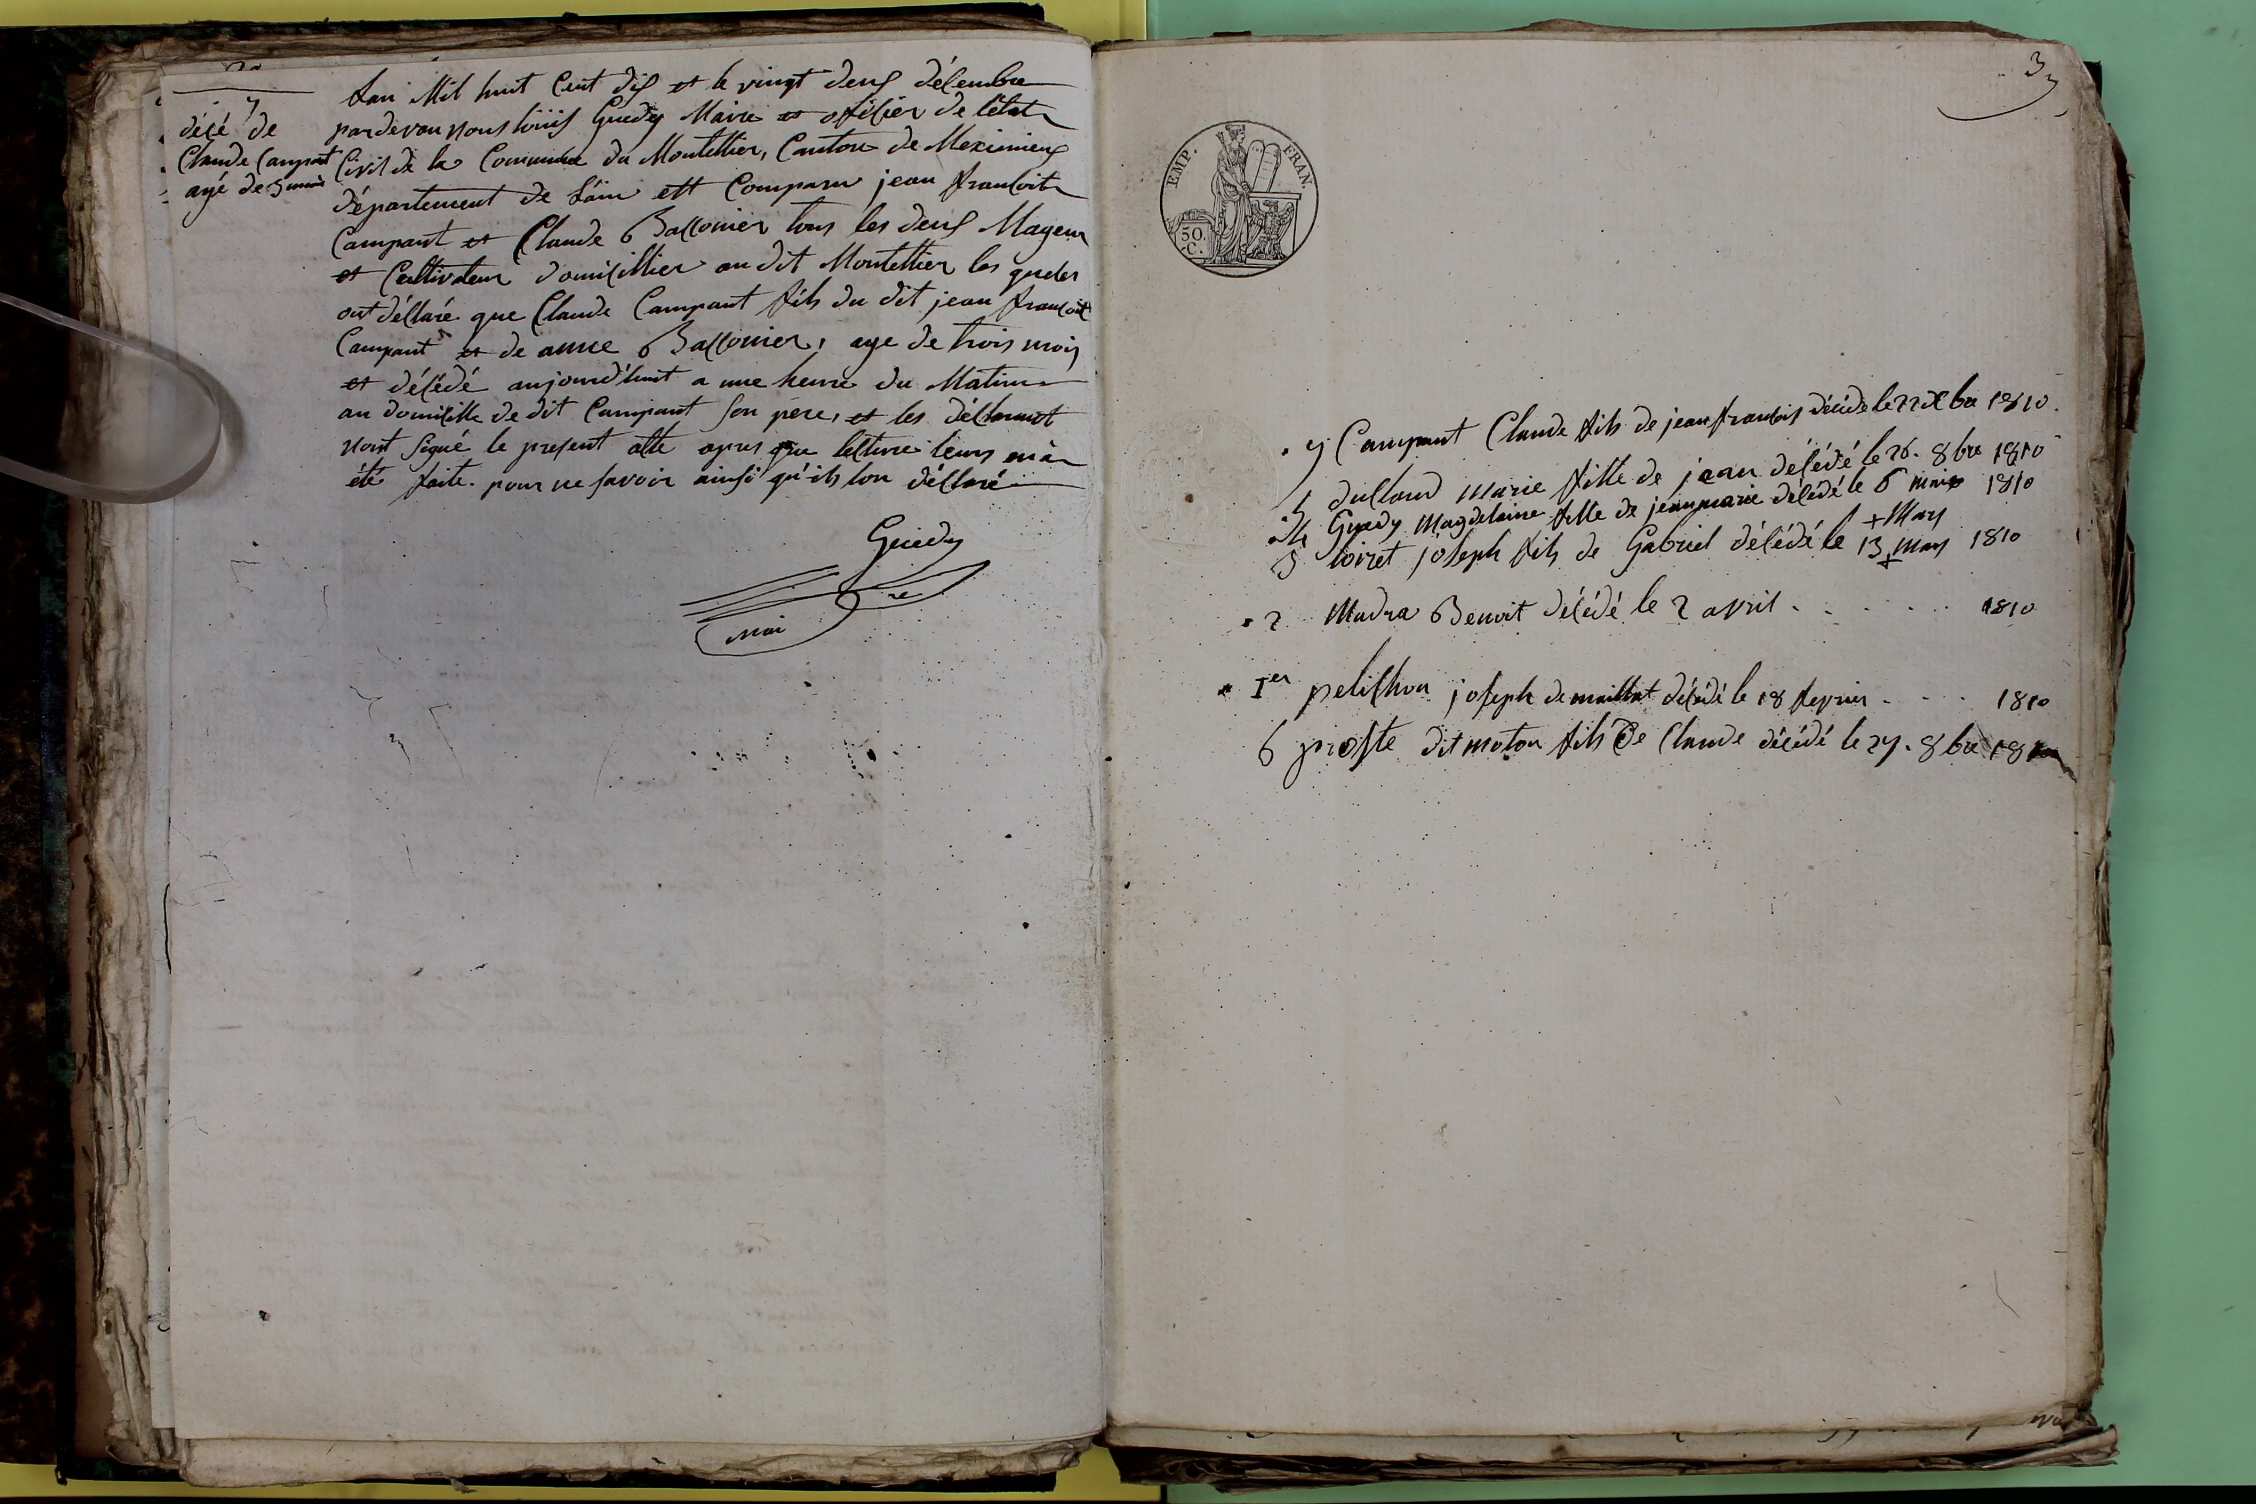 7
décé de
Claude Campant
agé de 3 mois
Lan Mil huit Cent dix et le vingt deux décembre
pardevan nous loüis Guedy Maire et officier de létat
Civil de la Commune du Montellier, Canton de Meximieux
département de Láin est Comparu jean francois
Campant et Claude Bassonier tous les deux Mageur
et Cultivateur domicillier au dit Montellier les quels
ont déllaré que Claude Campant fils du dit jean francois
Campant et de anne Bassonier, age de trois mois
et décédé aujourd'huit a une heure du Matin
au domicille de dit Campant son pere, et les déllarant
nont signé le present atte apres que letture leurs en a
été faite. pour ne savoir ainsi qu'ils lon déllaré
Guedy
maire
37
EMP. FRAN.
50.
C.
7 Campant Claude fils de jean francois décédé le 22 Xbre 1810.
5 dulland Marie fille de jean décédé le 26. 8bre 1810
4 Guedy Magdelaine fille de jeanmarie décédé le 6 1810
+ Mars
3 loiret joseph fils de Gabriel décédé le 13 + Mars 1810
2 Madra Benoit décédé le 2 avril . . . . . . 1810
1er pelichon joseph de maillat décédé le 18 fevrier . . . . 1810
6 proste dit moton fils de Claude décédé le 27. 8bre 1810